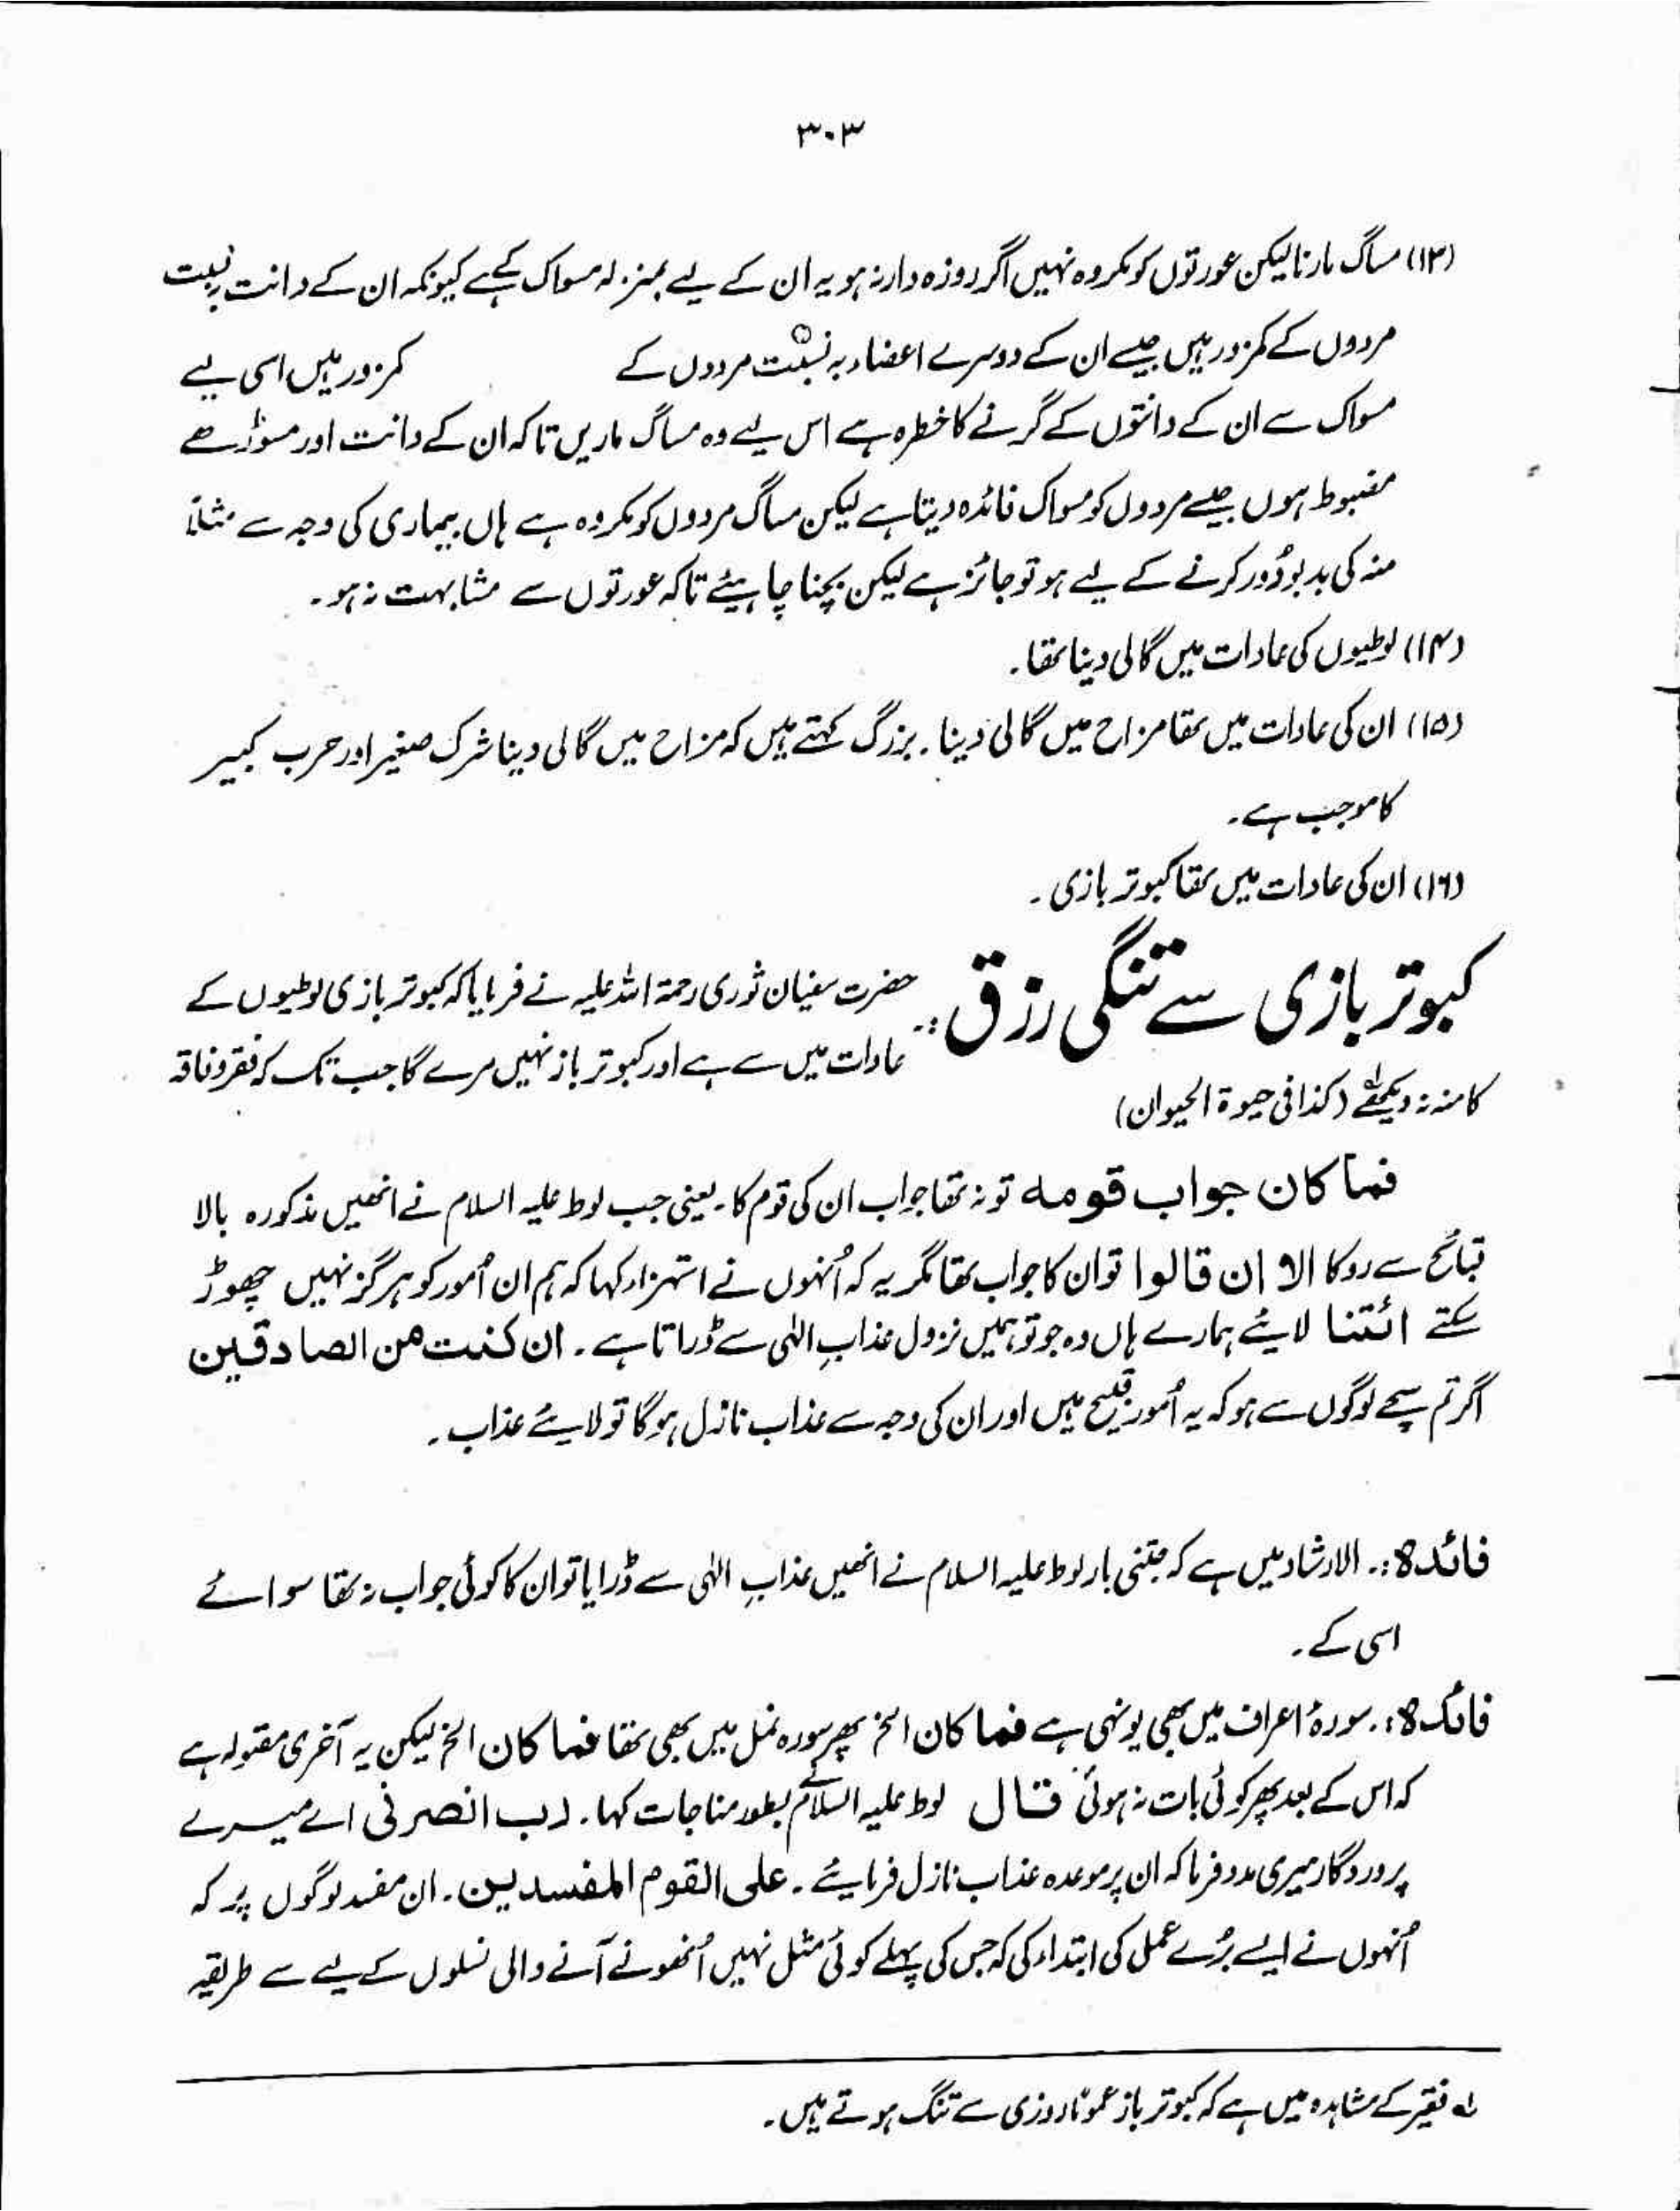 ۳۰۳
(۱۳) مساگ مارنا لیکن عورتوں کو مکروہ نہیں اگر روزہ دار نہ ہو یہ ان کے لیے بمنزلہ مسواک کے ہے کیونکہ ان کے دانت بہ نسبت
مردوں کے کمزور ہیں جیسے ان کے دوسرے اعضاء بہ نسبت مردوں کے کمزور ہیں اسی لیے
مسواک سے ان کے دانتوں کے گرنے کا خطرہ ہے اس لیے وہ مساگ ماریں تاکہ ان کے دانت اور مسوڑھے
مضبوط ہوں جیسے مردوں کو مسواک فائدہ دیتا ہے لیکن مساگ مردوں کو مکروہ ہے ہاں بیماری کی وجہ سے مثلاً
منہ کی بدبو دُور کرنے کے لیے ہو تو جائز ہے لیکن بچنا چاہیئے تاکہ عورتوں سے مشابہت نہ ہو۔
(۱۴) لوطیوں کی عادات میں گالی دینا تھا۔
(۱۵) ان کی عادات میں تھا مزاح میں گالی دینا۔ بزرگ کہتے ہیں کہ مزاح میں گالی دینا شرک صغیر اور حرب کبیر
کا موجب ہے۔
(۱۶) ان کی عادات میں تھا کبوتر بازی۔
کبوتر بازی سے تنگی رزق :۔ حضرت سفیان ثوری رحمۃ اللہ علیہ نے فرمایا کہ کبوتر بازی لوطیوں کے
عادات میں سے ہے اور کبوتر باز نہیں مرے گا جب تک کہ فقر و فاقہ
کا منہ نہ دیکھے لہ (کذا فی حیوۃ الحیوان)
فما کان جواب قومہ تو نہ تھا جواب ان کی قوم کا۔ یعنی جب لوط علیہ السلام نے انھیں مذکورہ بالا
قبائح سے روکا الا ان قالوا تو ان کا جواب تھا مگر یہ کہ اُنہوں نے استہزاءً کہا کہ ہم ان اُمور کو ہرگز نہیں چھوڑ
سکتے ائتنا لایئے ہمارے ہاں وہ جو تو ہمیں نزول عذابِ الٰہی سے ڈراتا ہے۔ ان کنت من الصادقین
اگر تم سچے لوگوں سے ہو کہ یہ اُمور قبیح ہیں اور ان کی وجہ سے عذاب نازل ہوگا تو لایئے عذاب۔
فائدہ :۔ الارشاد میں ہے کہ جتنی بار لوط علیہ السلام نے انھیں عذابِ الٰہی سے ڈرایا تو ان کا کوئی جواب نہ تھا سوائے
اسی کے۔
فائدہ :۔ سورۂ اعراف میں بھی یونہی ہے فما کان الخ پھر سورہ نمل میں بھی تھا فما کان الخ لیکن یہ آخری مقولہ ہے
کہ اس کے بعد پھر کوئی بات نہ ہوئی قال لوط علیہ السلام نے بطور مناجات کہا۔ رب انصرنی اے میرے
پروردگار میری مدد فرما کہ ان پر موعدہ عذاب نازل فرمایئے۔ علی القوم المفسدین۔ ان مفسد لوگوں پر کہ
اُنہوں نے ایسے بُرے عمل کی ابتداء کی کہ جس کی پہلے کوئی مثل نہیں اُنھونے آنے والی نسلوں کے لیے سے طریقہ
لہ فقیر کے مشاہدہ میں ہے کہ کبوتر باز عموماً روزی سے تنگ ہوتے ہیں۔